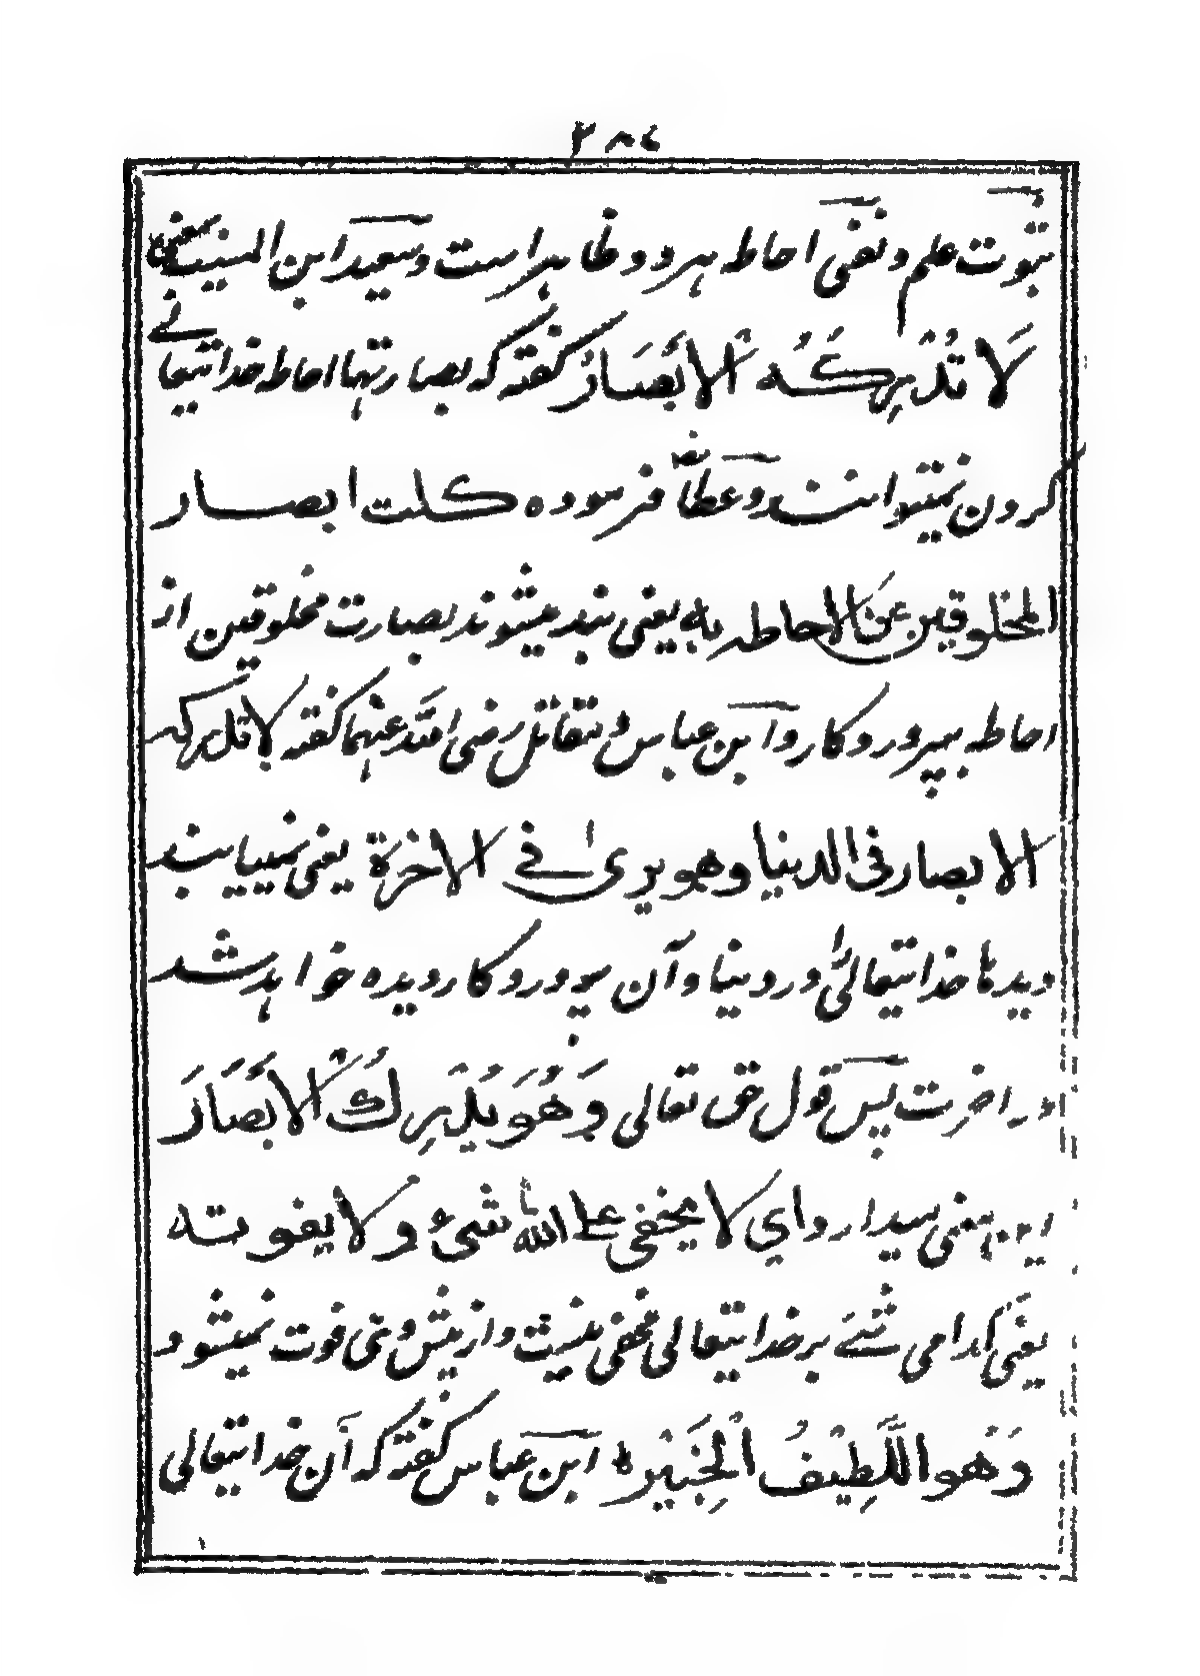 ۲۸۴
ثبوت علم و نفی احاطه هر دو ظاهر است و سعید ابن المسیب
لَا تُدْرِكُهُ الْاَبْصَارُ گفته که بصارتها احاطه خدا تعالی
کردن نمیتوانند و عطا فرموده كلت ابصار
المخلوقین عن الاحاطه به یعنی بند میشوند بصارت مخلوقین از
احاطه بپروردگار و ابن عباس و مقاتل رضی الله عنهما گفته لا تدركه
الابصار فی الدنیا وهو یری فی الاخرة یعنی نمییابند
دیدها خدا تعالی را در دنیا و آن پروردگار دیده خواهد شد
در اخرت پس قول حق تعالی وَهُوَ يُدْرِكُ الْاَبْصَارَ
این معنی میدارد ای لا یخفی علی الله شیء ولا یفوته
یعنی کدامی شئے بر خدا تعالی مخفی نیست و از پیش وی فوت نمیشود
وَهُوَ اللَّطِيْفُ الْخَبِيْرُ ط ابن عباس گفته که آن خدا تعالی